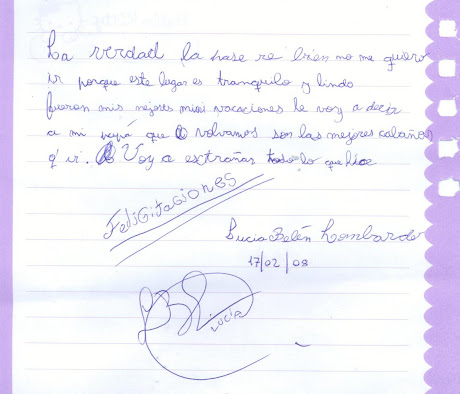 La verdad la pase re bien no me quiero
ir porque este lugar es tranquilo y lindo
fueron mis mejores mini vacaciones le voy a decir
a mi papá que volvamos son las mejores cabañas
q' vi. Voy a extrañar todo lo que hice
Felisitaciones
Lucia Belén Lombardo
17/02/08
Lucia